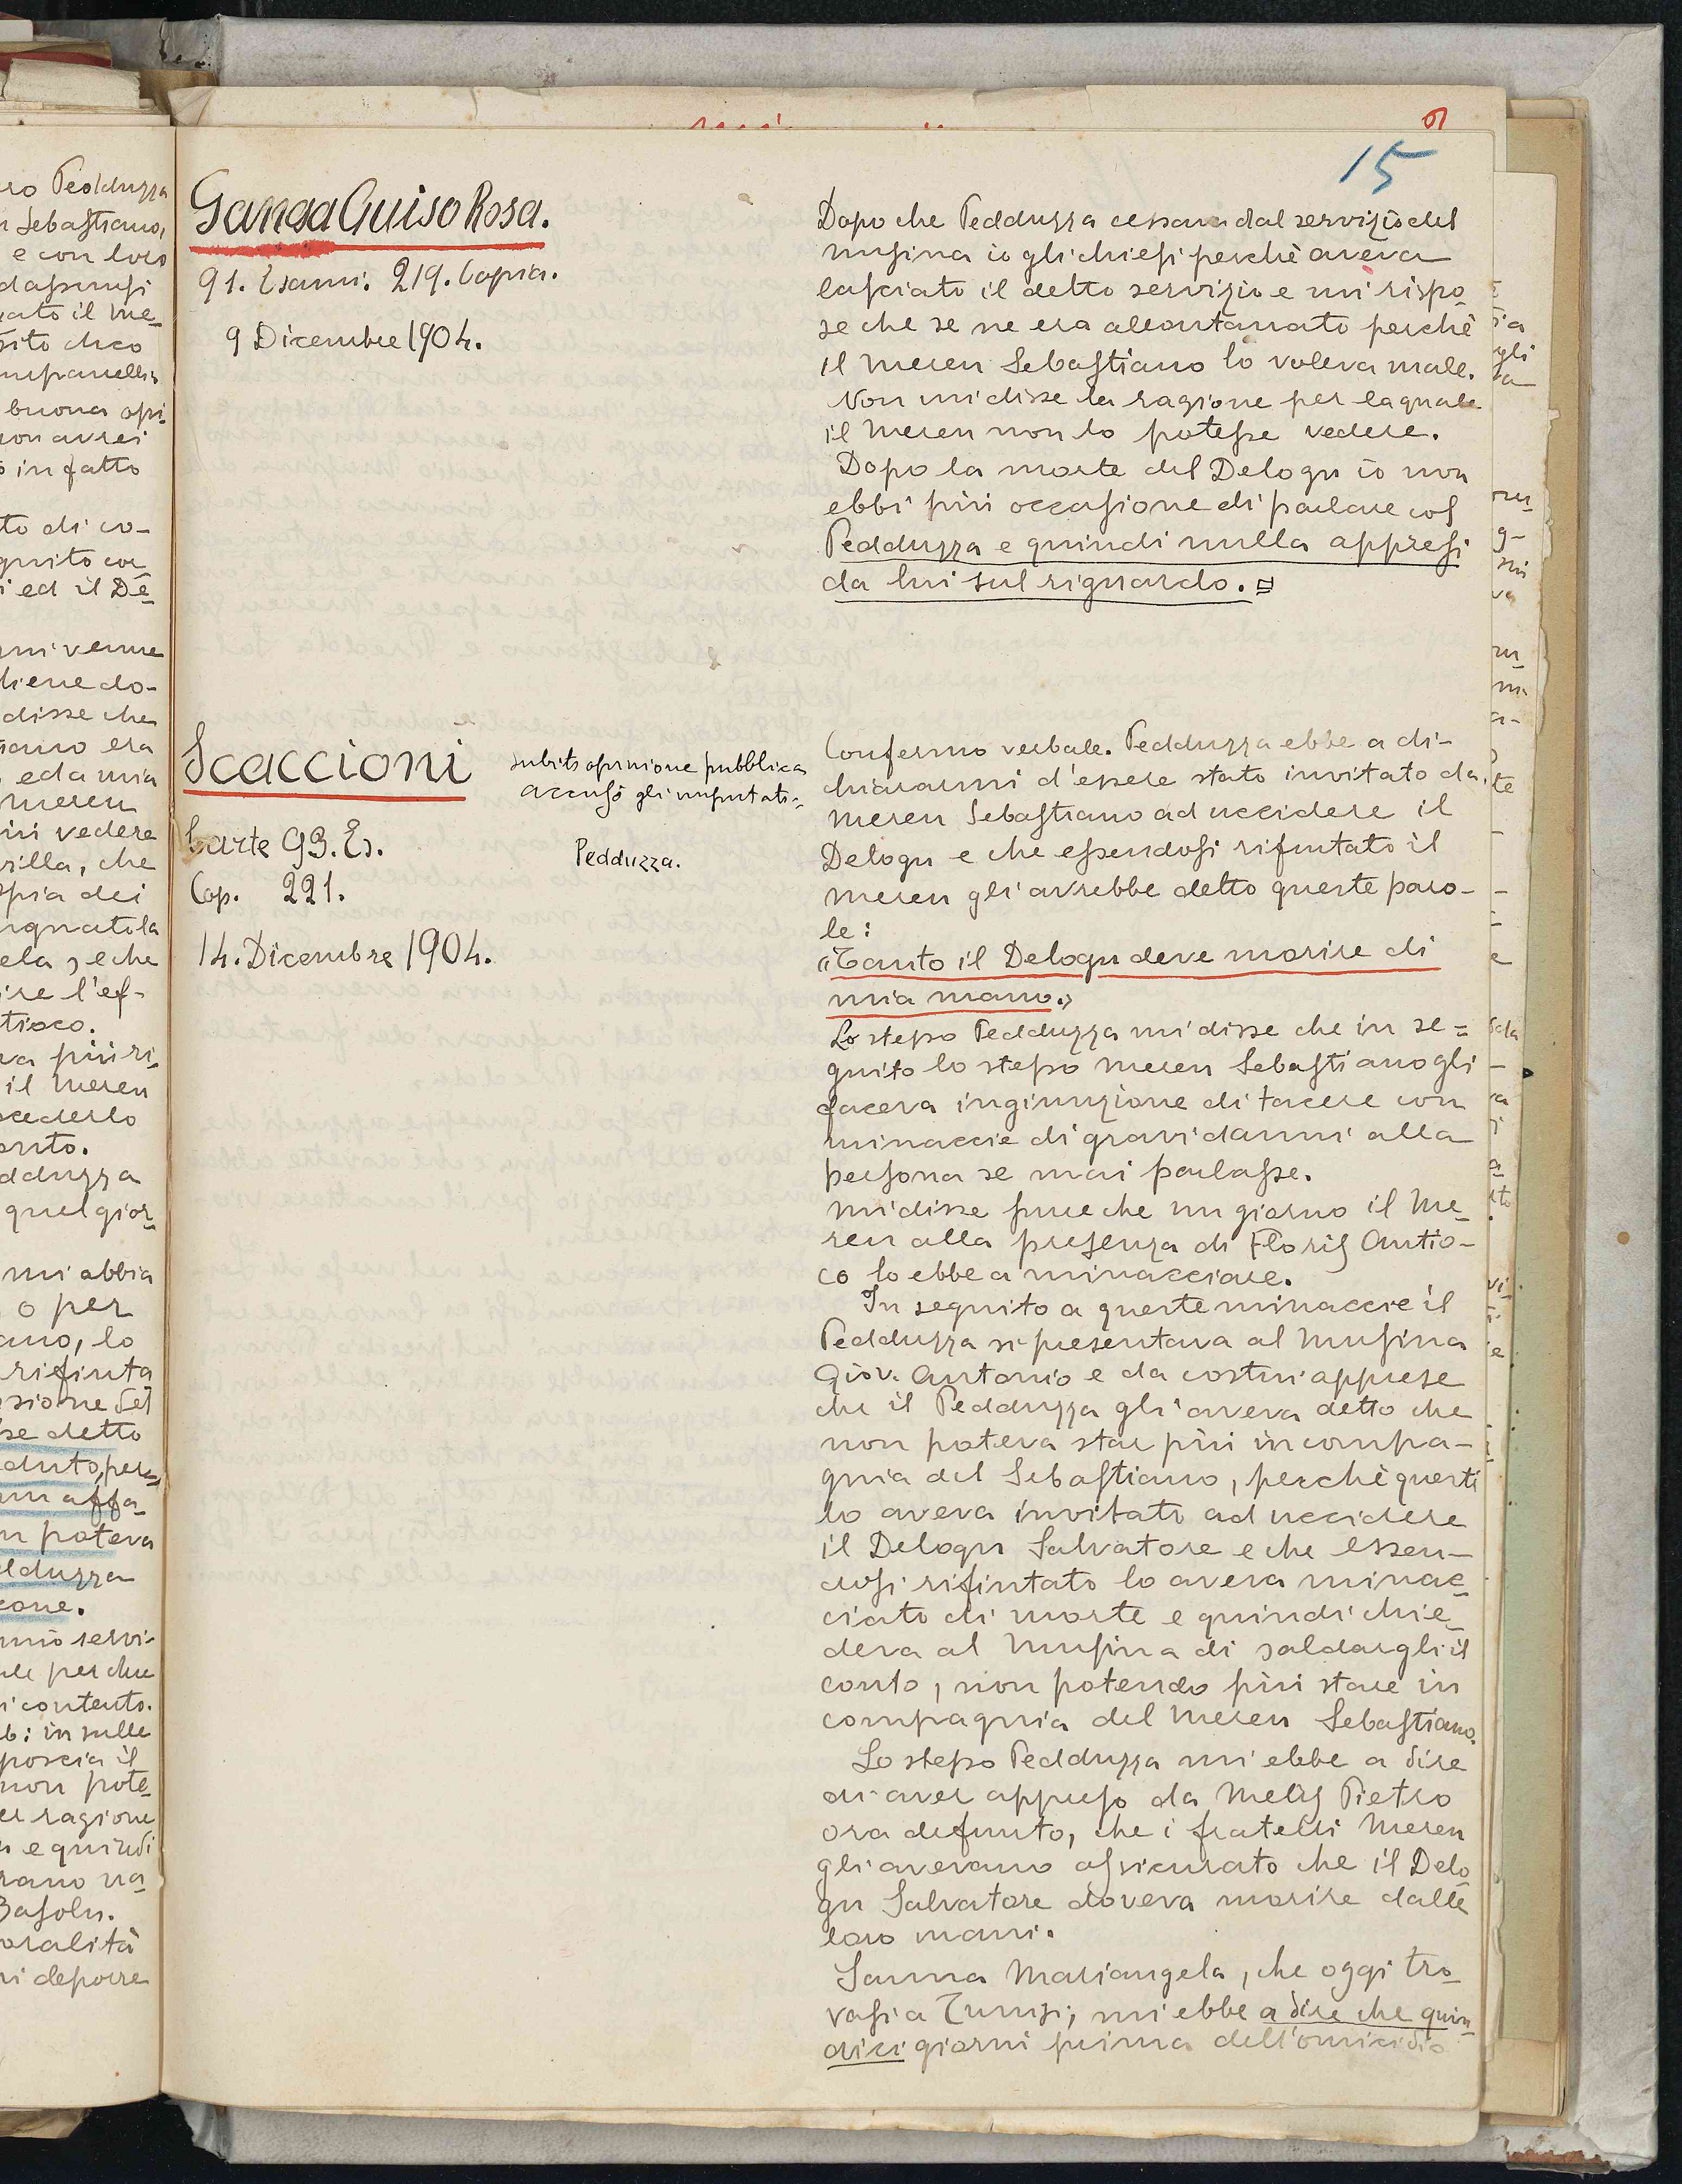 15
Ganga Guiso Rosa.
91. Esami. 219. Copia.
9 Dicembre 1904.
Dopo che Pedduzza cessava dal servizio del
Musina io gli chiesi perchè aveva
lasciato il detto servizio e mi rispo-
se che se ne era allontanato perchè
il Mereu Sebastiano lo voleva male.
Non mi disse la ragione per la quale
il Mereu non lo potesse vedere.
Dopo la morte del Delogu io non
ebbi più occasione di parlare col
Pedduzza e quindi nulla appresi
da lui sul riguardo.
Scaccioni
Carte 93. Es.
Cop. 221.
14. Dicembre 1904.
subito opinione pubblica
accusò gli imputati.
Pedduzza.
Confermo verbale. Pedduzza ebbe a di-
chiararmi d'essere stato invitato da
Mereu Sebastiano ad uccidere il
Delogu e che essendosi rifiutato il
Mereu gli avrebbe detto queste paro-
le:
"Tanto il Delogu deve morire di
mia mano."
Lo stesso Pedduzza mi disse che in se-
guito lo stesso Mereu Sebastiano gli
faceva ingiunzione di tacere con
minaccie di gravi danni alla
persona se mai parlasse.
Mi disse pure che un giorno il Me-
reu alla presenza di Floris Antio-
co lo ebbe a minacciare.
In seguito a queste minaccie il
Pedduzza si presentava al Musina
Giov. Antonio e da costui apprese
che il Pedduzza gli aveva detto che
non poteva star più in compa-
gnia del Sebastiano, perchè questi
lo aveva invitato ad uccidere
il Delogu Salvatore e che essen-
dosi rifiutato lo aveva minac-
ciato di morte e quindi chie-
deva al Musina di saldargli il
conto, non potendo più stare in
compagnia del Mereu Sebastiano.
Lo stesso Pedduzza mi ebbe a dire
di aver appreso da Melis Pietro
ora defunto, che i fratelli Mereu
gli avevano assicurato che il Delo
gu Salvatore doveva morire dalle
loro mani.
Sanna Mariangela, che oggi tro-
vasi a Tunisi, mi ebbe a dire che quin-
dici giorni prima dell'omicidio